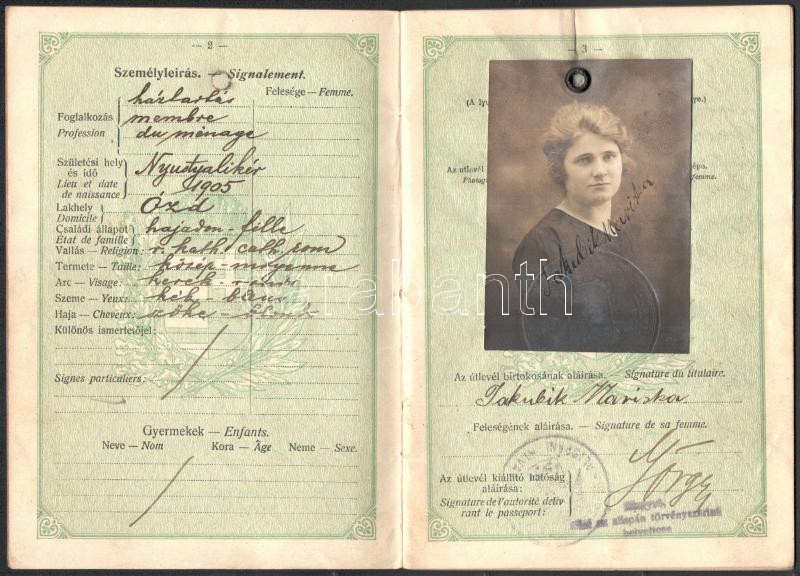 — 2 —
Személyleírás. — Signalement.
Felesége — Femme.
háztartás
Foglalkozás
membre
Profession
du ménage
Születési hely
és idő
Lieu et date
de naissance
1905
Lakhely
Domicile
Ózd
Családi állapot
État de famille
hajadon - fille
Vallás — Religion:
r. kath. cath. rom
Termete — Taille:
közép - moyenne
Arc — Visage:
kerek -
Szeme — Yeux:
kék - bleus
Haja — Cheveux:
szőke -
Különös ismertetőjel:
Signes particuliers:
Gyermekek — Enfants.
Neve — Nom Kora — Âge Neme — Sexe.
— 3 —
Az útlevél
femme.
darabanth
Jakubik Mariska
Az útlevél birtokosának aláírása. — Signature du titulaire.
Jakubik Mariska
Feleségének aláírása. — Signature de sa femme.
Az útlevél kiállító hatóság
aláírása:
Signature de l'autorité déliv
rant le passeport:
az alispán törvényszerinti
helyettese